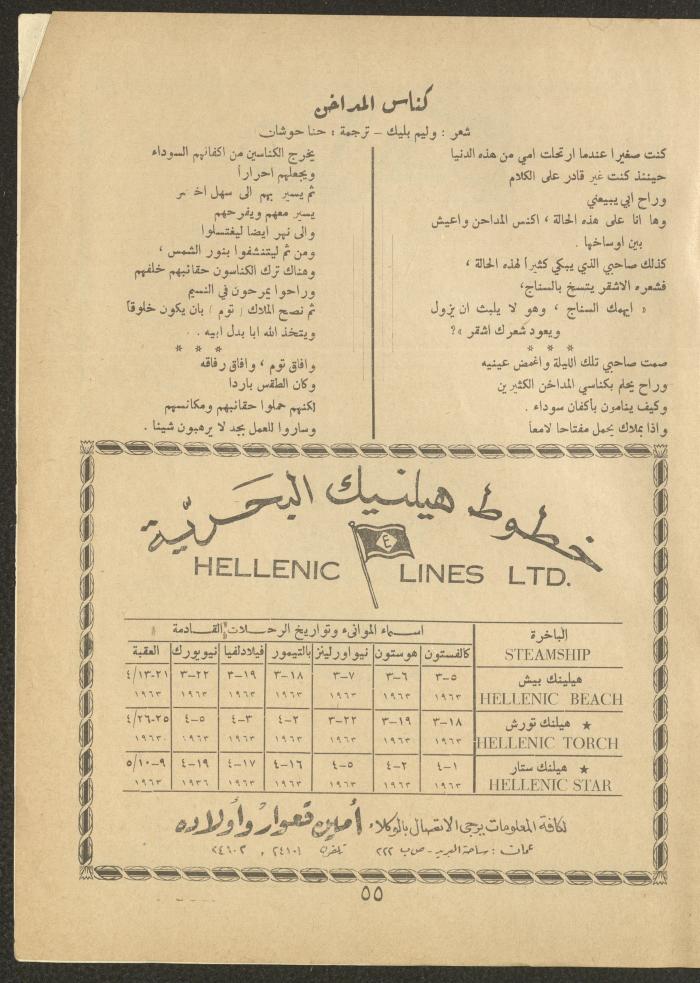 كناس المداخن
شعر : وليم بليك – ترجمة : حنا حوشان
كنت صغيرا عندما ارتحلت امي من هذه الدنيا
حينئذ كنت غير قادر على الكلام
وراح ابي يبيعني
وها انا على هذه الحالة ، اكنس المداخن واعيش
بين اوساخها .
كذلك صاحبي الذي يبكي كثيراً لهذه الحالة ،
فشعره الاشقر يتسخ بالسناج،
« ايهمك السناج ، وهو لا يلبث ان يزول
ويعود شعرك اشقر »؟
* * *
صمت صاحبي تلك الليلة واغمض عينيه
وراح يحلم بكناسي المداخن الكثيرين
وكيف ينامون بأكفان سوداء .
واذا بملاك يحمل مفتاحا لامعاً
يخرج الكناسين من اكفانهم السوداء
ويجعلهم احراراً
ثم يسير بهم الى سهل
يسير معهم ويفرحهم
والى نهر ايضا ليغتسلوا
ومن ثم ليتنشفوا بنور الشمس ،
وهناك ترك الكناسون حقائبهم خلفهم
وراحوا يمرحون في النسيم
ثم نصح الملاك ( توم ) بان يكون خلوقاً
ويتخذ الله ابا بدل ابيه . .
* * *
وافاق توم ، وافاق رفاقه
وكان الطقس باردا
لكنهم حملوا حقائبهم ومكانسهم
وساروا للعمل بجد لا يرهبون شيئا .
خطوط هيلنيك البحرية
E
HELLENIC LINES LTD.
الباخرة STEAMSHIP اسماء الموانىء وتواريخ الرحلات القادمة
كالفستون هوستون نيواورلينز بالتيمور فيلادلفيا نيويورك العقبة
هيلينك بيش ٥–٣ ٦–٣ ٧–٣ ١٨–٣ ١٩–٣ ٢٢–٣ ٢١–٤/١٣
HELLENIC BEACH ١٩٦٣ ١٩٦٣ ١٩٦٣ ١٩٦٣ ١٩٦٣ ١٩٦٣ ١٩٦٣
★ هيلنك تورش ١٨–٣ ١٩–٣ ٢٢–٣ ٢–٤ ٣–٤ ٥–٤ ٢٥–٤/٢٦
HELLENIC TORCH ١٩٦٣ ١٩٦٣ ١٩٦٣ ١٩٦٣ ١٩٦٣ ١٩٦٣ ١٩٦٣
★ هيلنك ستار ١–٤ ٢–٤ ٥–٤ ١٦–٤ ١٧–٤ ١٩–٤ ٩–٥/١٠
HELLENIC STAR ١٩٦٣ ١٩٦٣ ١٩٦٣ ١٩٦٣ ١٩٦٣ ١٩٣٦ ١٩٦٣
لكافة المعلومات يرجى الاتصال بالوكلاء أمين قعوار وأولاده
عمان : ساحة البريد – ص ب ٢٢٢ تلفون ٢٤١٠١ و ٢٤٦٠٢
٥٥